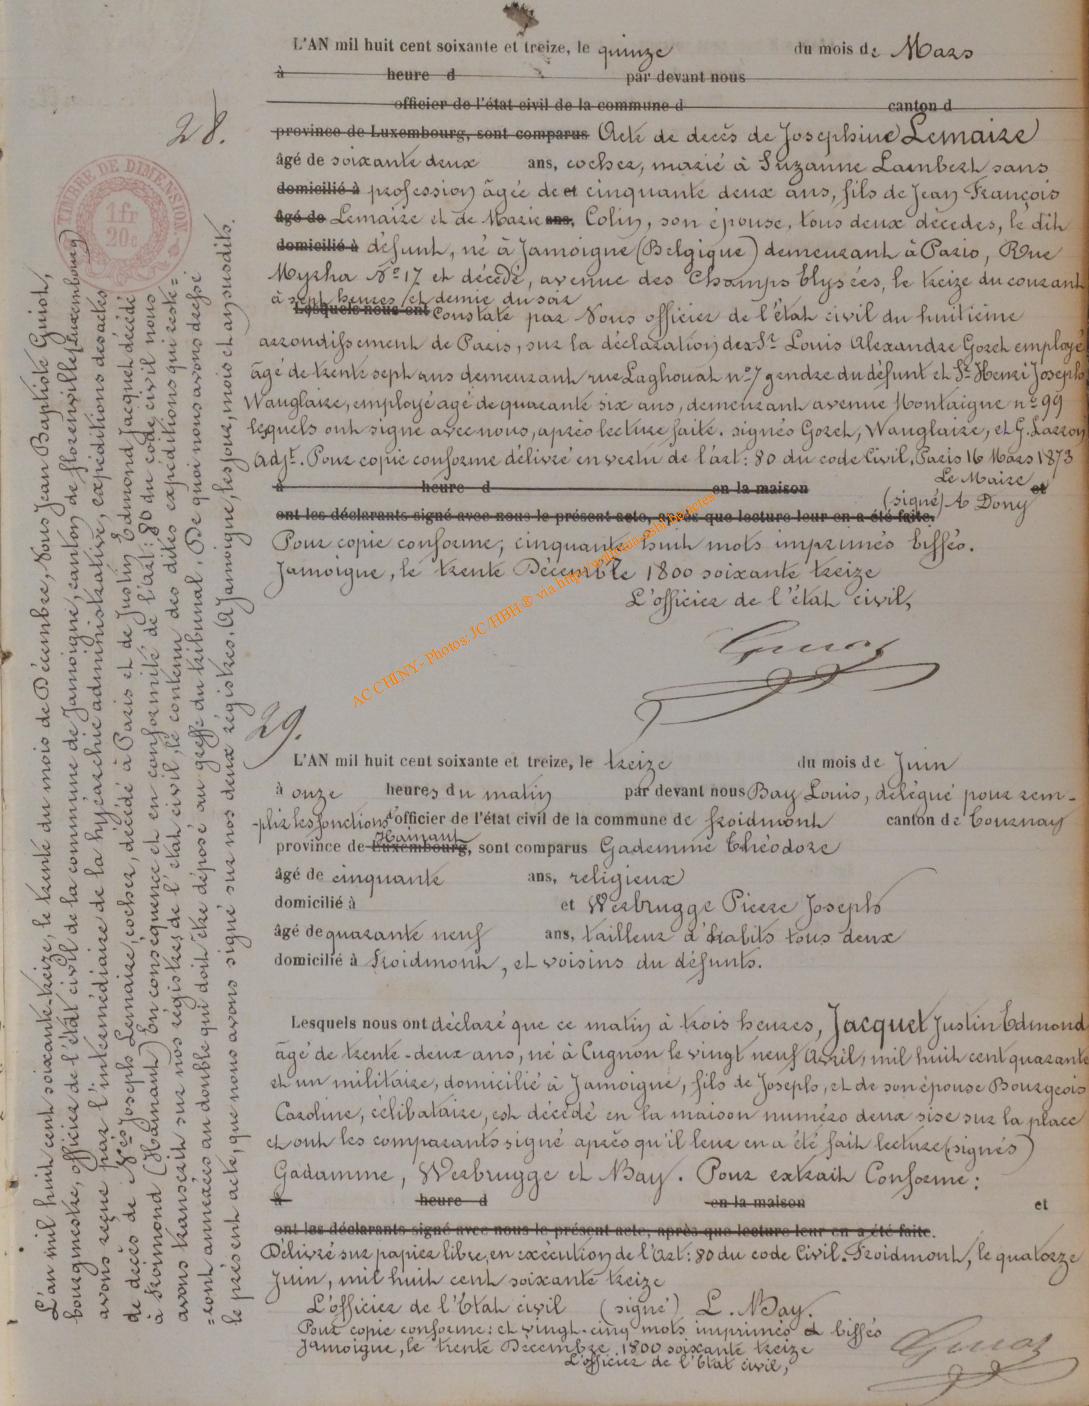 28.
TIMBRE DE DIMENSION
1 fr
20c
L'an mil huit cent soixante-treize, le trente du mois de Décembre, Nous Jean Baptiste Guiot,
bourgmestre, officier de l'état civil de la commune de Jamoigne, canton de Florenville (Luxembourg)
avons reçue par l'intermédiaire de la hyérarchie administrative, expéditions des actes
de décès de Joseph Lemaire, cocher, décédé à Paris et de Justin Edmond Jacquet décédé
à Fromond (Hainant) En conséquence et en conformité de l'art: 80 du code civil nous
avons transcrit sur nos régistres de l'état civil, le contenu des dites expéditions qui reste=
=ront annexées au double qui doit être déposé au greffe du tribunal. De quoi nous avons dressé
le présent acte, que nous avons signé sur nos deux régistres. A Jamoigne, les jour, mois et an susdits.
L'AN mil huit cent soixante et treize, le quinze du mois de Mars
à heure d par devant nous
officier de l'état civil de la commune d canton d
province de Luxembourg, sont comparus Acte de decès de Josephine Lemaire
âgé de soixante deux ans, cocher, marié à Suzanne Lambert sans
domicilié à profession âgée de et cinquante deux ans, fils de Jean François
âgé de Lemaire et de Marie ans, Colin, son épouse, tous deux décedes, le dit
domicilié à défunt, né à Jamoigne (Belgique) demeurant à Paris, Rue
Myrha No 17 et décédé, avenue des Champs Elysées, le treize du courant
à sept heures et demie du soir
Lesquels nous ont Constaté par Nous officier de l'état civil du huitieme
arrondissement de Paris, sur la déclaration des Sr Louis Alexandre Goret employé
âgé de trente sept ans demeurant rue Laghouat no 7 gendre du défunt et Sr Henri Joseph
Wauglaire, employé agé de quarante six ans, demeurant avenue Montaigne no 99
lesquels ont signé avec nous, après lecture faite. signés Goret, Wauglaire, et G. Larron
Adjt. Pour copie conforme délivré en vertu de l'art: 80 du code Civil, Paris 16 Mars 1873
Le Maire
à heure d en la maison et
(signé) A Dony
ont les déclarants signé avec nous le présent acte, après que lecture leur en a été faite.
Pour copie conforme; cinquante huit mots imprimés biffés.
Jamoigne, le trente Décembre 1800 soixante treize
L'officier de l'état civil,
AC CHINY - Photos JC HBH ® via
29.
L'AN mil huit cent soixante et treize, le treize du mois de Juin
à onze heures du matin par devant nous Bay Louis, délégué pour rem-
-plir les fonctions d'officier de l'état civil de la commune de Froidmont canton de Tournay
Hainant
province de Luxembourg, sont comparus Gademme Théodore
âgé de cinquante ans, religieux
domicilié à et Werbrugge Pierre Joseph
âgé de quarante neuf ans, tailleur d'habits tous deux
domicilié à Froidmont, et voisins du défunts.
Lesquels nous ont déclaré que ce matin à trois heures, Jacquet Justin Edmond
âgé de trente-deux ans, né à Cugnon le vingt neuf Avril, mil huit cent quarante
et un militaire, domicilié à Jamoigne, fils de Joseph, et de son épouse Bourgeois
Caroline, célibataire, est décédé en la maison numéro deux sise sur la place
et ont les comparants signé après qu'il leur en a été fait lecture (signés)
Gadamme, Werbrugge et Bay. Pour extrait Conforme:
à heure d en la maison et
ont les déclarants signé avec nous le présent acte, après que lecture leur en a été faite.
Délivré sur papier libre, en exécution de l'Art: 80 du code Civil. Froidmont, le quatorze
Juin, mil huit cent soixante treize
L'officier de l'Etat civil (signé) L. Bay.
Pour copie conforme: et vingt-cinq mots imprimés biffés
Jamoigne, le trente Décembre 1800 soixante treize
L'officier de l'Etat civil,